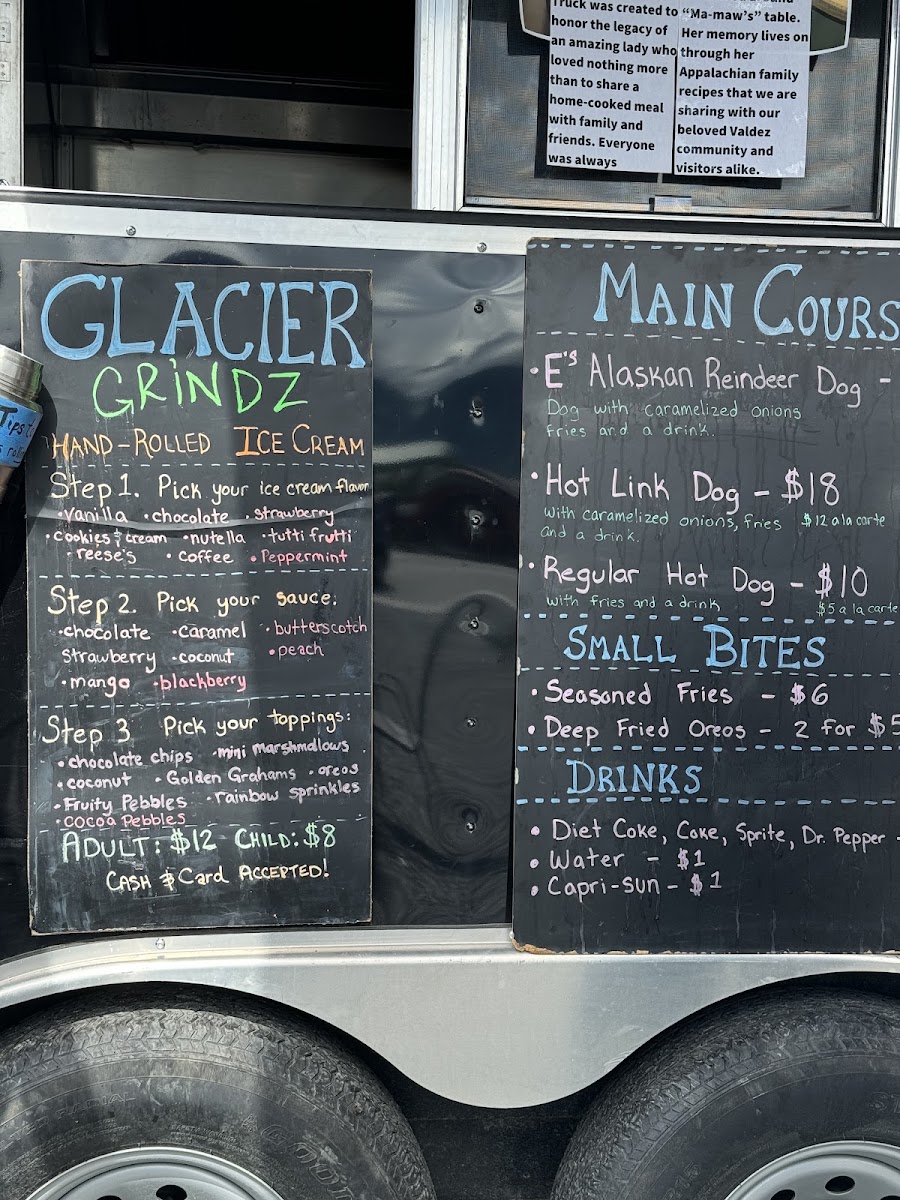 Truck was created to
honor the legacy of
an amazing lady who
loved nothing more
than to share a
home-cooked meal
with family and
friends. Everyone
was always
"Ma-maw's" table.
Her memory lives on
through her
Appalachian family
recipes that we are
sharing with our
beloved Valdez
community and
visitors alike.
Tips
GLACIER
GRINDZ
HAND-ROLLED ICE CREAM
Step 1. Pick your ice cream flavor
•vanilla •chocolate •strawberry
•cookies & cream •nutella •tutti frutti
•reese's •coffee •Peppermint
Step 2. Pick your sauce:
•chocolate •caramel •butterscotch
strawberry •coconut •peach
•mango •blackberry
Step 3 Pick your toppings:
•chocolate chips •mini marshmallows
•coconut •Golden Grahams •oreos
•Fruity Pebbles •rainbow sprinkles
•cocoa Pebbles
ADULT: $12 CHILD: $8
CASH & Card ACCEPTED!
MAIN COURS
•E's Alaskan Reindeer Dog -
Dog with caramelized onions
fries and a drink.
•Hot Link Dog - $18
with caramelized onions, fries $12 a la carte
and a drink.
•Regular Hot Dog - $10
with fries and a drink $5 a la carte
SMALL BITES
•Seasoned Fries - $6
•Deep Fried Oreos - 2 for $5
DRINKS
•Diet Coke, Coke, Sprite, Dr. Pepper -
•Water - $1
•Capri-sun - $1